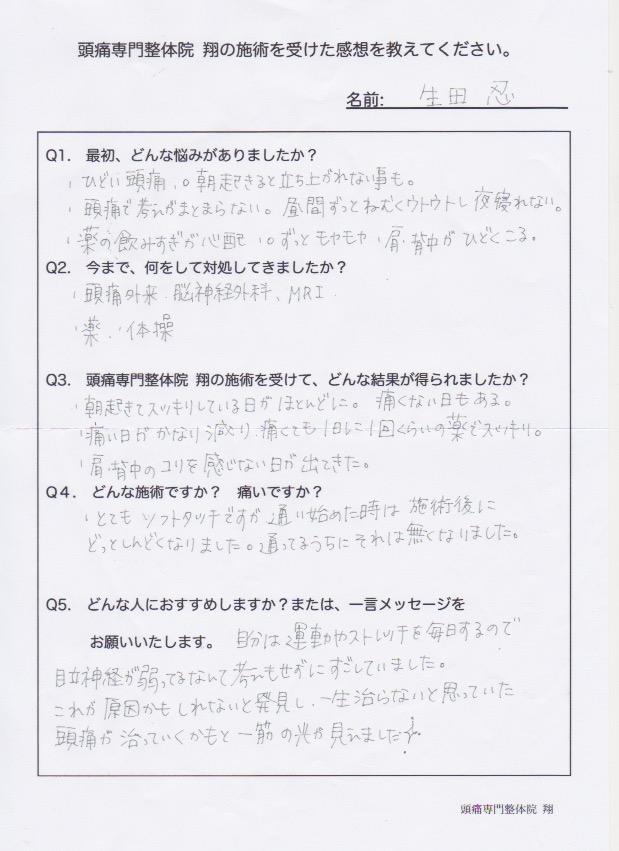 頭痛専門整体院 翔の施術を受けた感想を教えてください。
名前: 生田 忍
Q1. 最初、どんな悩みがありましたか?
・ひどい頭痛、。朝起きると立ち上がれない事も。
・頭痛で考えがまとまらない。昼間ずっとねむくウトウトし夜寝れない。
・薬の飲みすぎが心配、。ずっとモヤモヤ・肩・背中がひどくこる。
Q2. 今まで、何をして対処してきましたか?
・頭痛外来・脳神経外科、MRI
・薬・体操
Q3. 頭痛専門整体院 翔の施術を受けて、どんな結果が得られましたか?
・朝起きてスッキリしている日がほとんどに。痛くない日もある。
・痛い日がかなり減り、痛くても1日に1回くらいの薬でスッキリ。
・肩・背中のコリを感じない日が出てきた。
Q4. どんな施術ですか? 痛いですか?
・とてもソフトタッチですが通い始めた時は施術後に
どっとしんどくなりました。通ってるうちにそれは無くなりました。
Q5. どんな人におすすめしますか?または、一言メッセージを
お願いいたします。 自分は運動やストレッチを毎日するので
自立神経が弱ってるなんて考えもせずにすごしていました。
これが原因かもしれないと発見し、一生治らないと思っていた
頭痛が治っていくかもと一筋の光が見えました!
頭痛専門整体院 翔